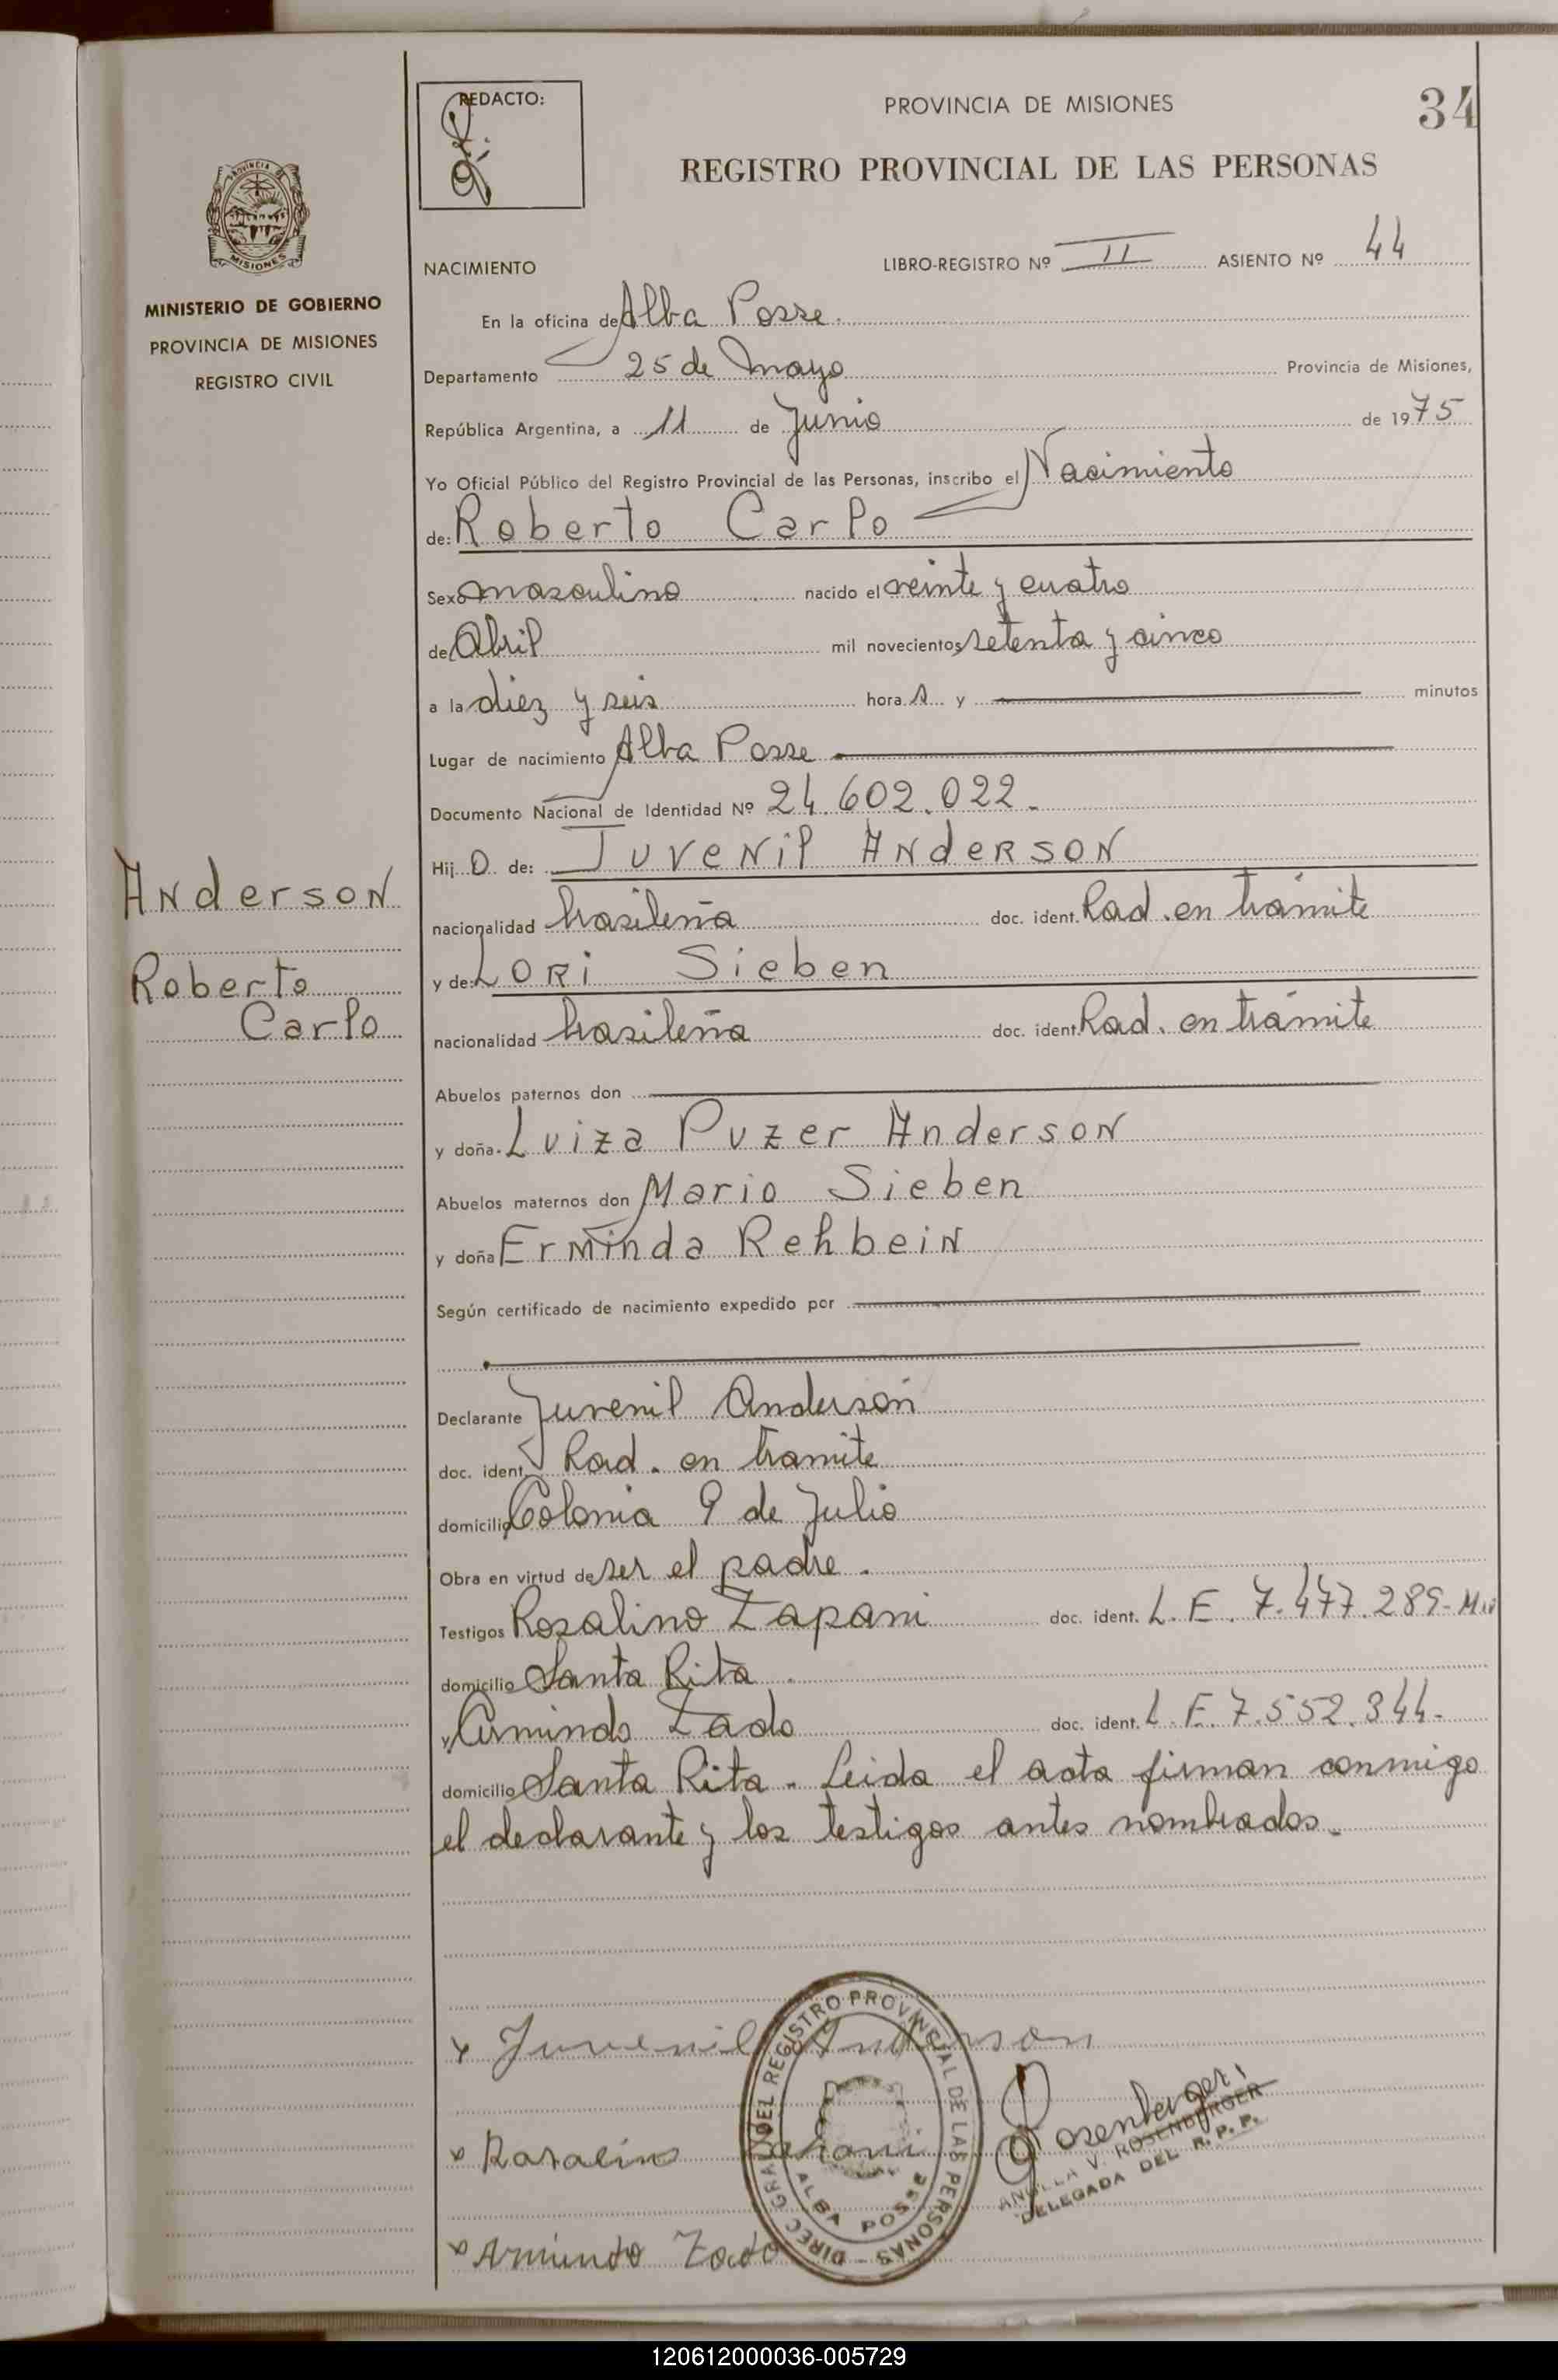 34
REDACTO:
PROVINCIA DE MISIONES
REGISTRO PROVINCIAL DE LAS PERSONAS
PROVINCIA DE
MISIONES
MINISTERIO DE GOBIERNO
PROVINCIA DE MISIONES
REGISTRO CIVIL
NACIMIENTO LIBRO-REGISTRO Nº II ASIENTO Nº 44
En la oficina de Alba Posse.
Departamento 25 de Mayo Provincia de Misiones,
República Argentina, a 11 de Junio de 1975
Yo Oficial Público del Registro Provincial de las Personas, inscribo el Nacimiento
de: Roberto Carlo
Sexo masculino nacido el veinte y cuatro
de Abril mil novecientos setenta y cinco
a la diez y seis hora s y minutos
Lugar de nacimiento Alba Posse
Documento Nacional de Identidad Nº 24.602.022.
Hij o de: Juvenil Anderson
Anderson
nacionalidad brasileña doc. ident. Rad. en trámite
y de: Lori Sieben
Roberto
Carlo
nacionalidad brasileña doc. ident. Rad. en trámite
Abuelos paternos don
y doña Luiza Puzer Anderson
Abuelos maternos don Mario Sieben
y doña Erminda Rehbein
Según certificado de nacimiento expedido por
Declarante Juvenil Anderson
doc. ident. Rad. en tramite
domicilio Colonia 9 de Julio
Obra en virtud de ser el padre.
Testigos Rosalino Zapani doc. ident. L.E. 7.477.289-
domicilio Santa Rita.
y Armindo Zado doc. ident. L.E. 7.552.344-
domicilio Santa Rita. Leida el acta firman conmigo
el declarante y los testigos antes nombrados.
x Juvenil Anderson
DIREC GRAL DEL REGISTRO PROVINCIAL DE LAS PERSONAS -
ALBA POSSE
Rosenberger
V. ROSENBERGER
DELEGADA DEL R.P.P.
x Rosalino
x Armindo Zado
120612000036-005729